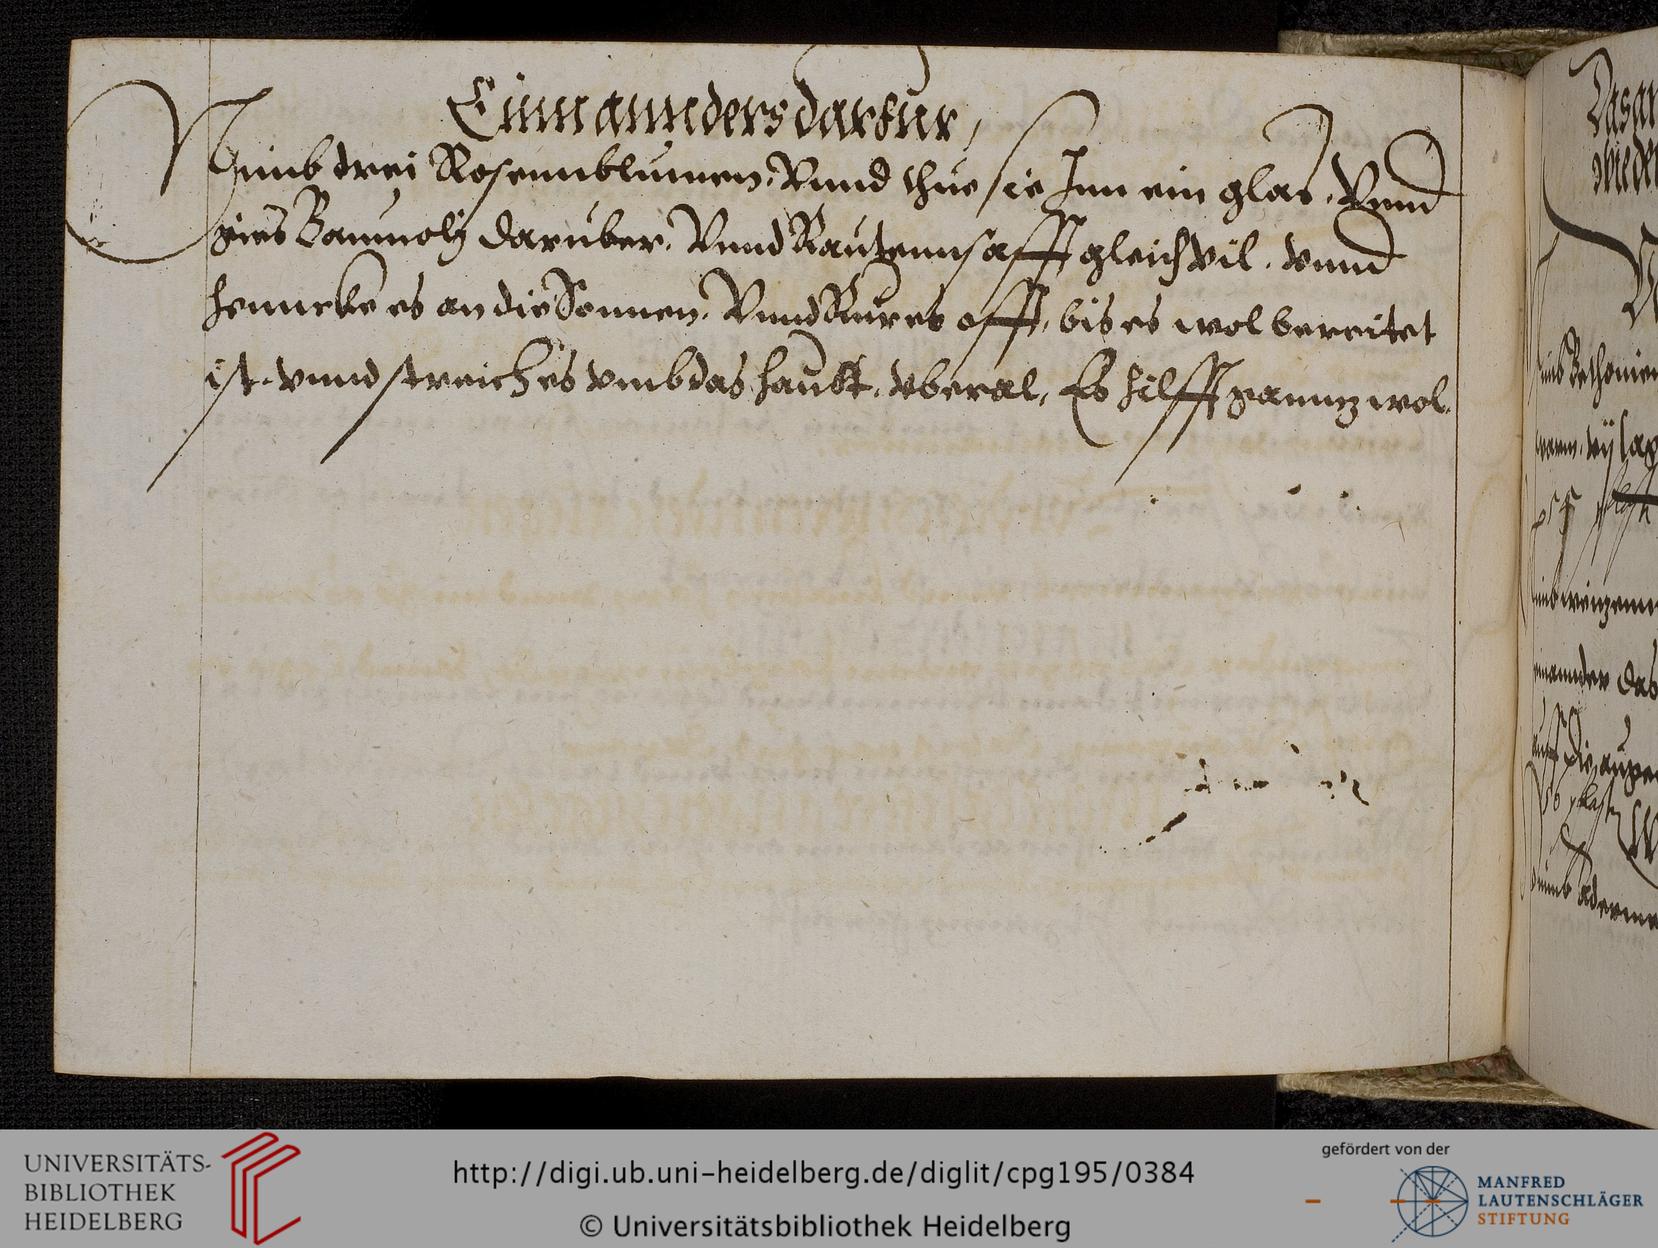 Einn annders darfur,
Nimb drei Rosennblumen, Vnnd thue sie Inn ein glas, Vnnd
gies Baumolj daruber, Vnnd Rautennsafft gleich vil, vnnd
henncke es an die Sonnen, Vnnd Rur es offt, bis es wol bereitet
ist, vnnd streich es vmb das haubt, vberal, Es hilfft ganntz wol.
wieder
das
UNIVERSITÄTS-
BIBLIOTHEK
HEIDELBERG
http://digi.ub.uni-heidelberg.de/diglit/cpg195/0384
© Universitätsbibliothek Heidelberg
gefördert von der
MANFRED
LAUTENSCHLÄGER
STIFTUNG